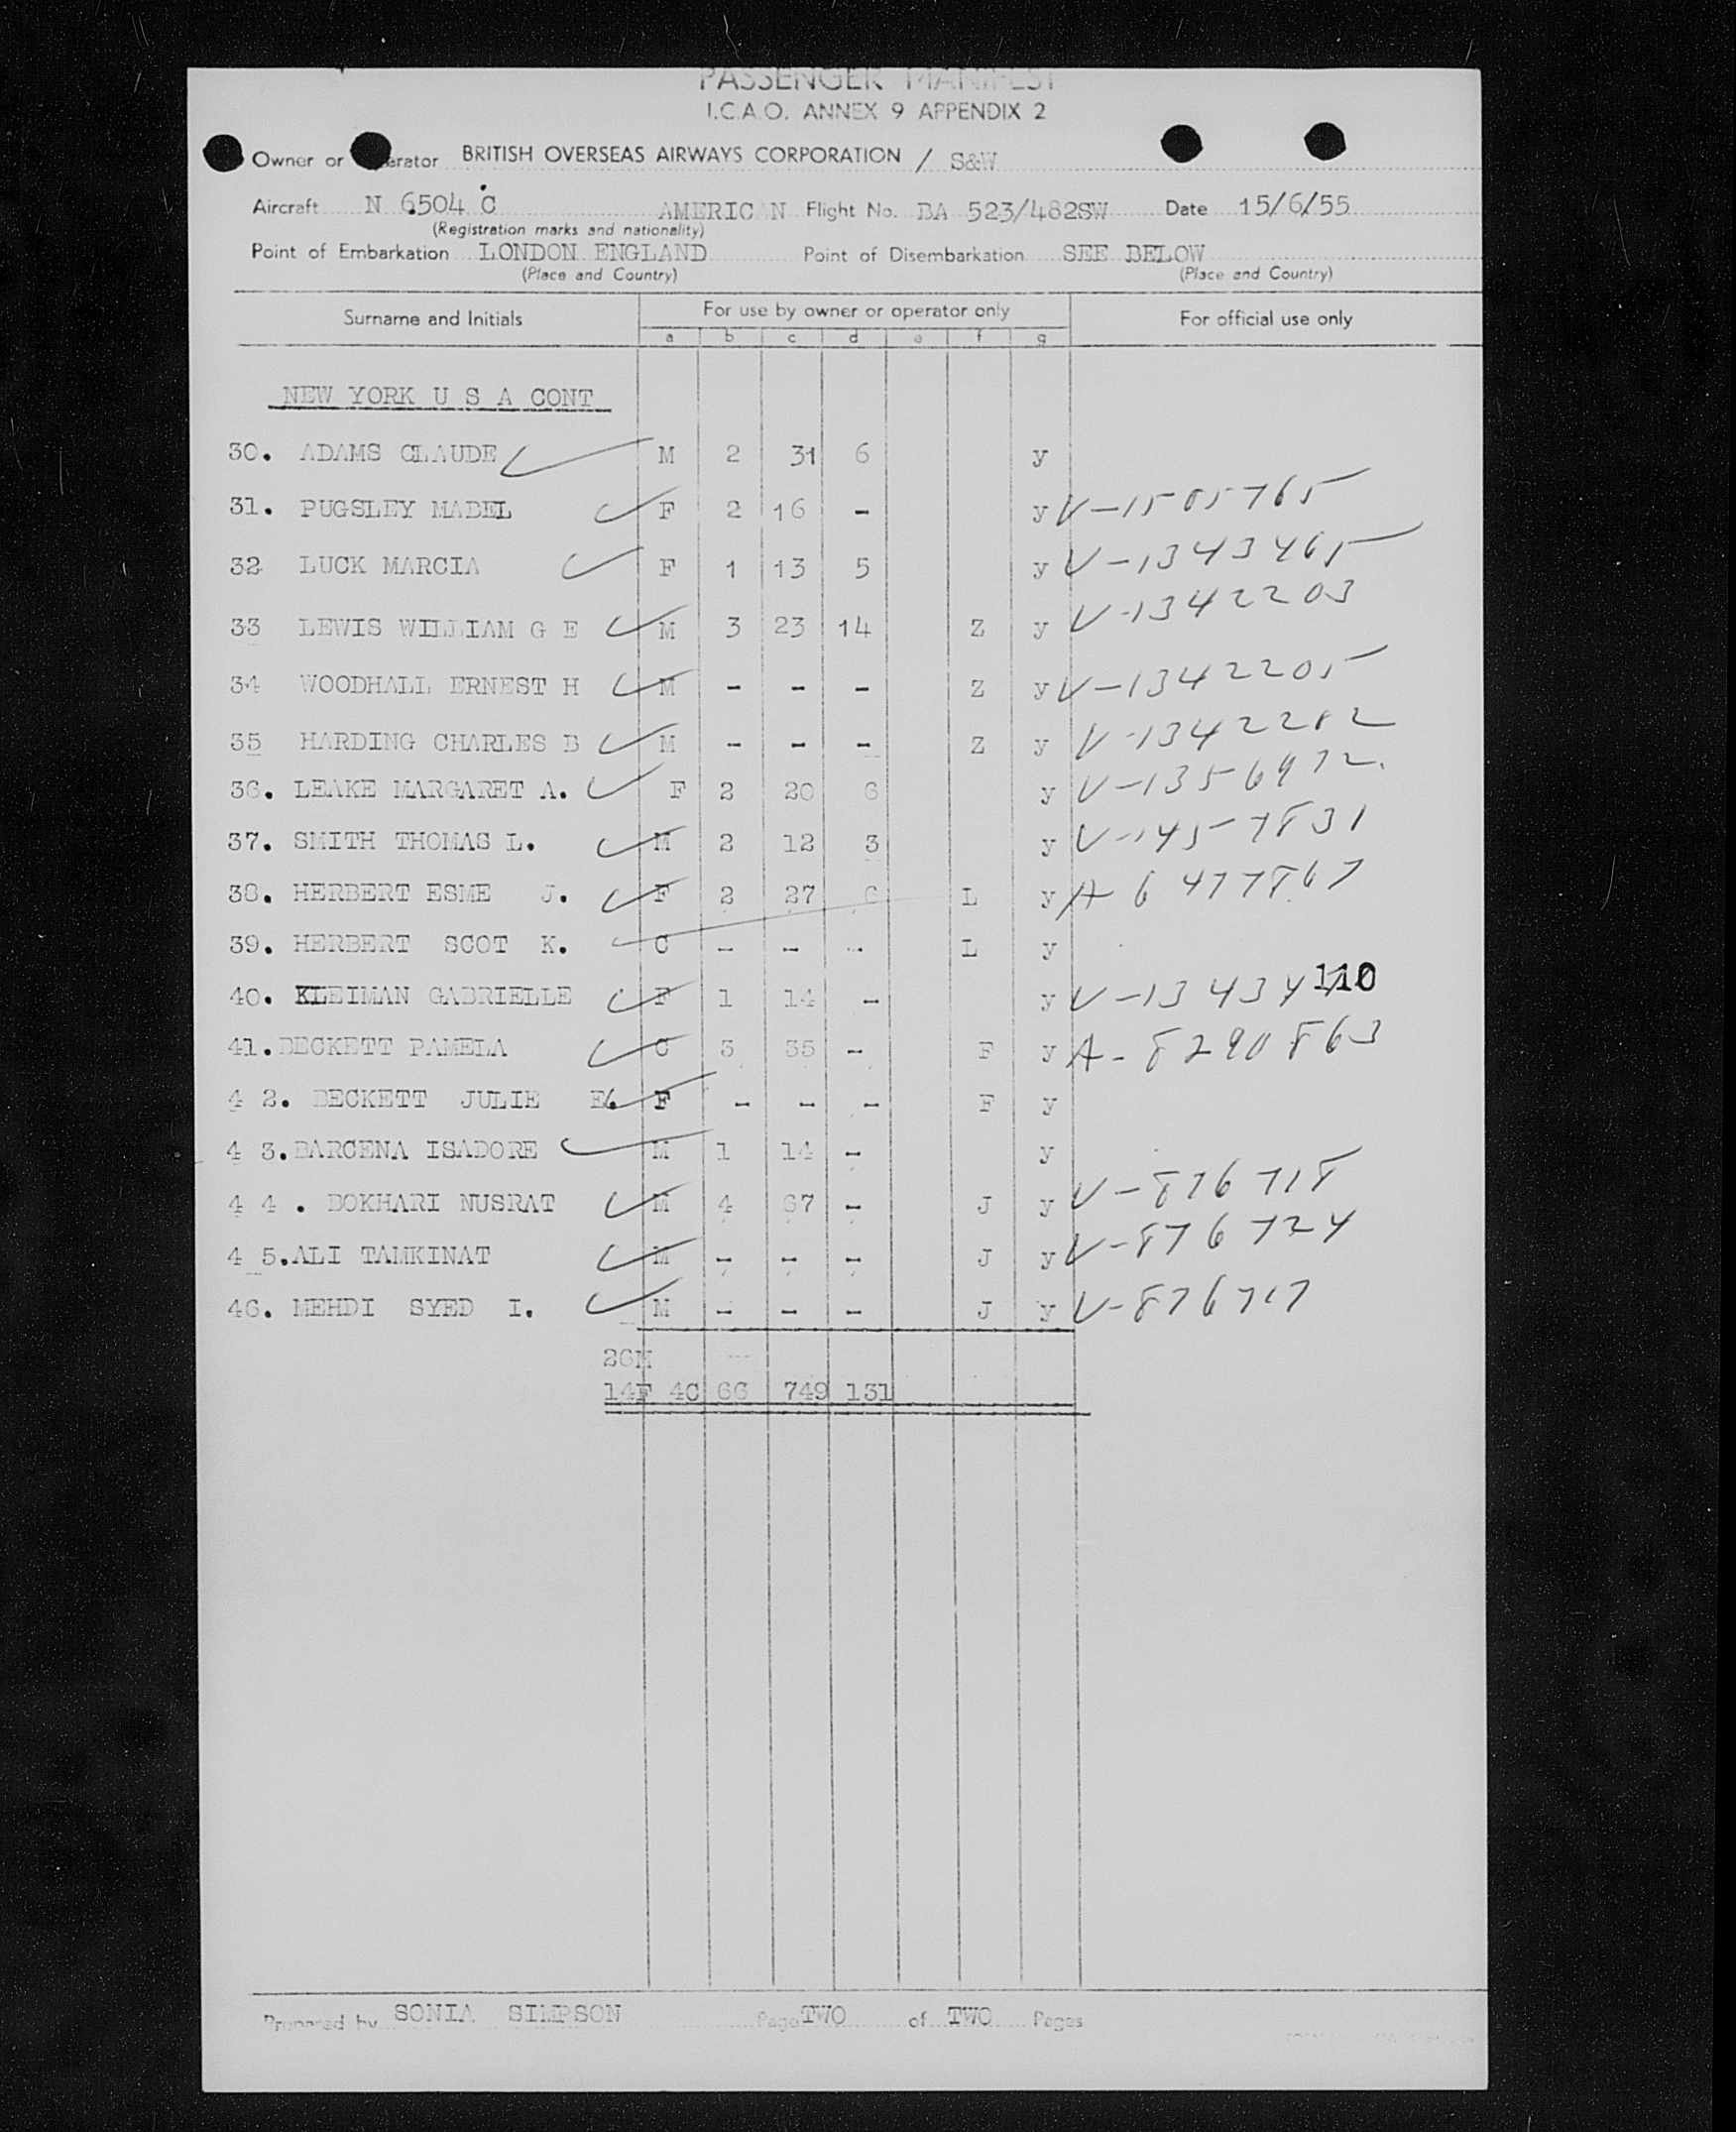 PASSENGER MANIFEST
I.C.A.O. ANNEX 9 APPENDIX 2
Owner or erator BRITISH OVERSEAS AIRWAYS CORPORATION / S&W
Aircraft N 6504 C AMERICAN Flight No. BA 523/482SW Date 15/6/55
(Registration marks and nationality)
Point of Embarkation LONDON ENGLAND Point of Disembarkation SEE BELOW
(Place and Country) (Place and Country)
Surname and Initials For use by owner or operator only For official use only
a b c d e f g
NEW YORK U S A CONT
30. ADAMS CLAUDE M 2 31 6 y
31. PUGSLEY MABEL F 2 16 - y V-1505765
32 LUCK MARCIA F 1 13 5 y V-1343465
33 LEWIS WILLIAM G E M 3 23 14 Z y V-1342203
34 WOODHALL ERNEST H M - - - Z y V-1342205
35 HARDING CHARLES B M - - - Z y V-1342282
36. LEAKE MARGARET A. F 2 20 6 y V-1356972.
37. SMITH THOMAS L. M 2 12 3 y V-1457831
38. HERBERT ESME J. F 2 27 6 L y A 6 477867
39. HERBERT SCOT K. C - - - L y
40. KLEIMAN GABRIELLE F 1 14 - y V-13434 110
41. BECKETT PAMELA C 3 35 - F y A-8290863
4 2. BECKETT JULIE E. F - - - F y
4 3. BARCENA ISADORE M 1 14 - y
4 4 . BOKHARI NUSRAT M 4 67 - J y V-876718
4 5. ALI TAMKINAT M - - - J y V-876724
46. MEHDI SYED I. M - - - J y V-876717
26M
14F 4C 66 749 131
Prepared by SONIA SIMPSON Page TWO of TWO Pages